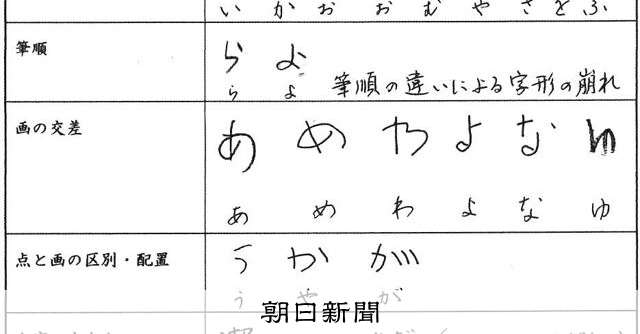 い か お お む や さ を ふ
筆順
ら よ
ら よ 筆順の違いによる字形の崩れ
画の交差
あ め わ よ な ゆ
あ め わ よ な ゆ
点と画の区別・配置
う か が
う や が
朝日新聞